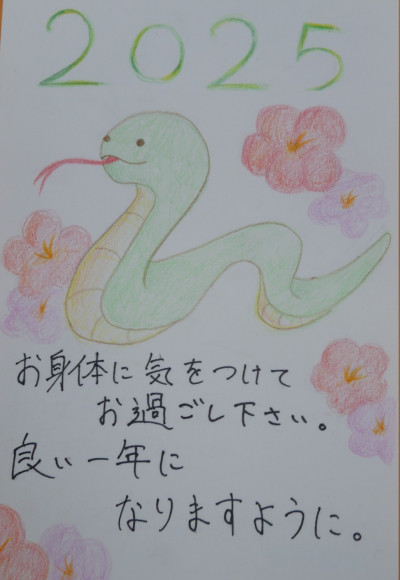 2025
お身体に気をつけて
お過ごし下さい。
良い一年に
なりますように。